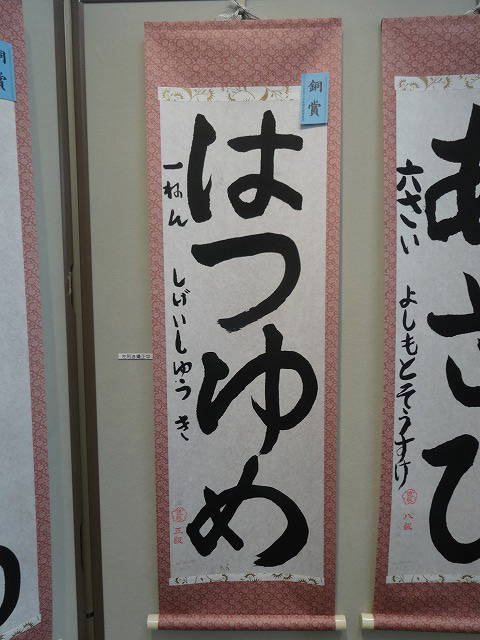 銅賞
はつゆめ
一ねん しげいしゆうき
五級
あさひ
六さい よしもとそうすけ
八級
銅賞